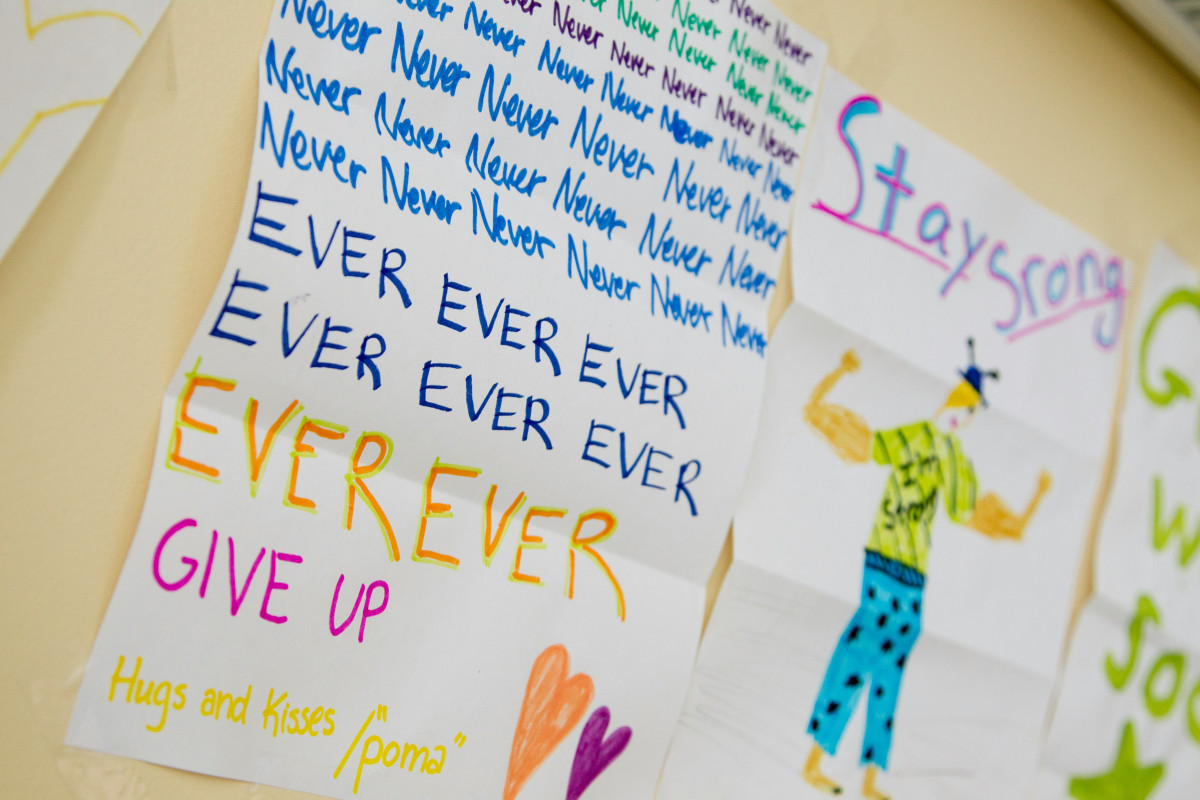 Never Never
Never Never Never Never
Never Never Never Never
Never Never Never Never Never Never
Never Never Never Never Never Never Never
Never Never Never Never Never Never
Never Never Never Never Never Never
Never Never Never Never Never Never
EVER EVER EVER
EVER EVER EVER
EVER EVER
GIVE UP
Hugs and Kisses /"poma"
Stay srong
I'm
strong
G
W
so